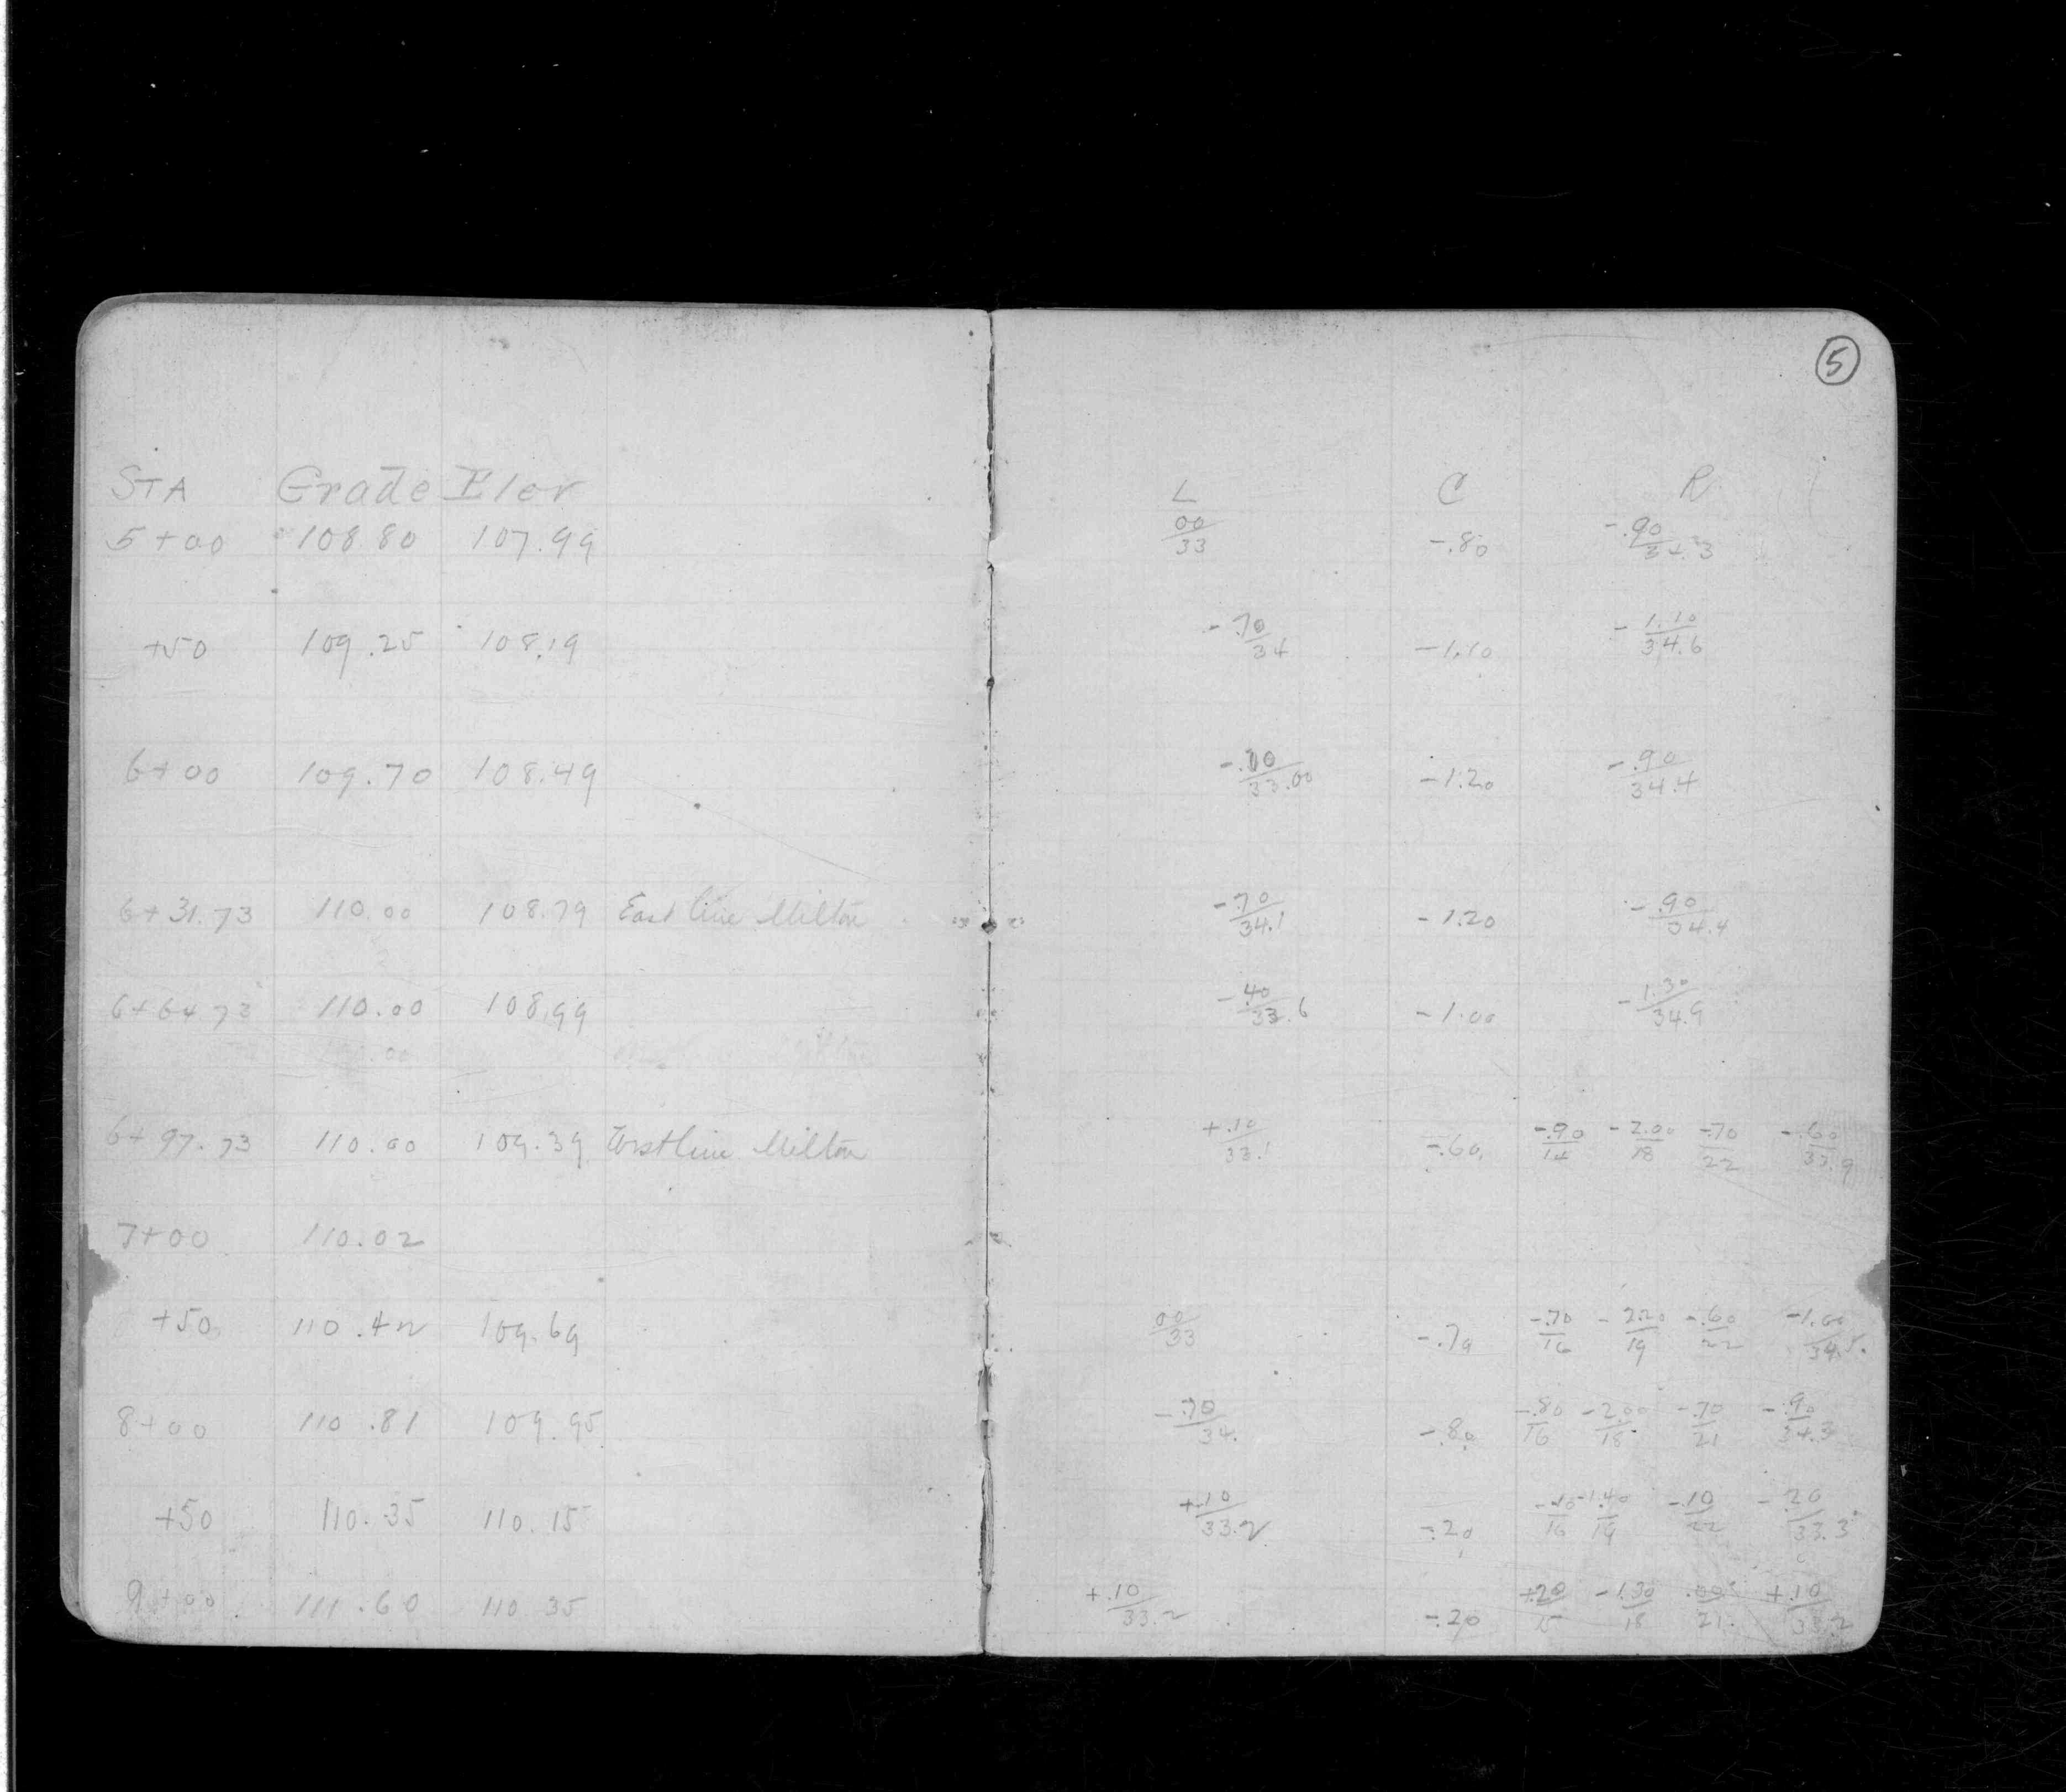 5
STA Grade Elev L C R
5+00 108.80 107.99 00/33 -.80 -.90/34.3
+50 109.25 108.19 -.70/34 -1.10 -1.10/34.6
6+00 109.70 108.49 -.10/33.00 -1.20 -.90/34.4
6+31.73 110.00 108.79 East line Milton -.70/34.1 -1.20 -.90/34.4
6+64.73 110.00 108.99 -.40/33.6 -1.00 -1.30/34.9
6+97.73 110.00 109.39 West line Milton +.10/33.1 -.60 -.90/14 -2.00/18 -.70/22 -.60/33.9
7+00 110.02
+50 110.42 109.69 00/33 -.70 -.70/16 -2.20/19 -.60/22 -1.00/34.5
8+00 110.81 109.95 -.70/34. -.80 -.80/16 -2.00/18 -.70/21 -.90/34.3
+50 110.35 110.15 +.10/33.2 -.20 -.10/16 -1.40/19 -.10/22 -.20/33.3
9+00 111.60 110.35 +.10/33.2 -.20 +.20/15 -1.30/18 .00/21. +.10/33.2